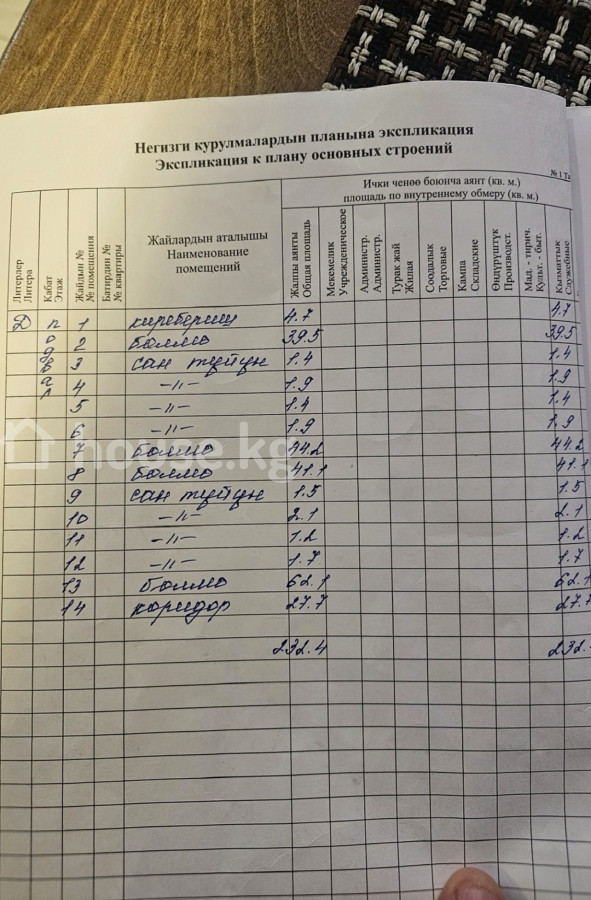 Негизги курулмалардын планына экспликация
Экспликация к плану основных строений
№ 1 Та
Литерлер
Литера
Кабат
Этаж
Жайдын №
№ помещения
Батирдин №
№ квартиры
Жайлардын аталышы
Наименование
помещений
Ички ченөө боюнча аянт (кв. м.)
площадь по внутреннему обмеру (кв. м.)
Жалпы аянты
Общая площадь
Мекемелик
Учрежденическое
Администр.
Администр.
Турак жай
Жилая
Соодалык
Торговые
Кампа
Складские
Өндүрүштүк
Производст.
Мад. - тирич.
Культ. - быт.
Кызматтык
Служебные
Д п 1 кирeбериш 4.7 4.7
о 2 бөлмө 39.5 39.5
д 3 сан түйүн 1.4 1.4
в
а 4 -"- 1.9 1.9
л 5 -"- 1.4 1.4
6 -"- 1.9 1.9
7 бөлмө 44.2 44.2
8 бөлмө 41.1 41.1
9 сан түйүн 1.5 1.5
10 -"- 2.1 2.1
11 -"- 1.2 1.2
12 -"- 1.7 1.7
13 бөлмө 62.1 62.1
14 коридор 27.7 27.7
232.4 232.
house.kg